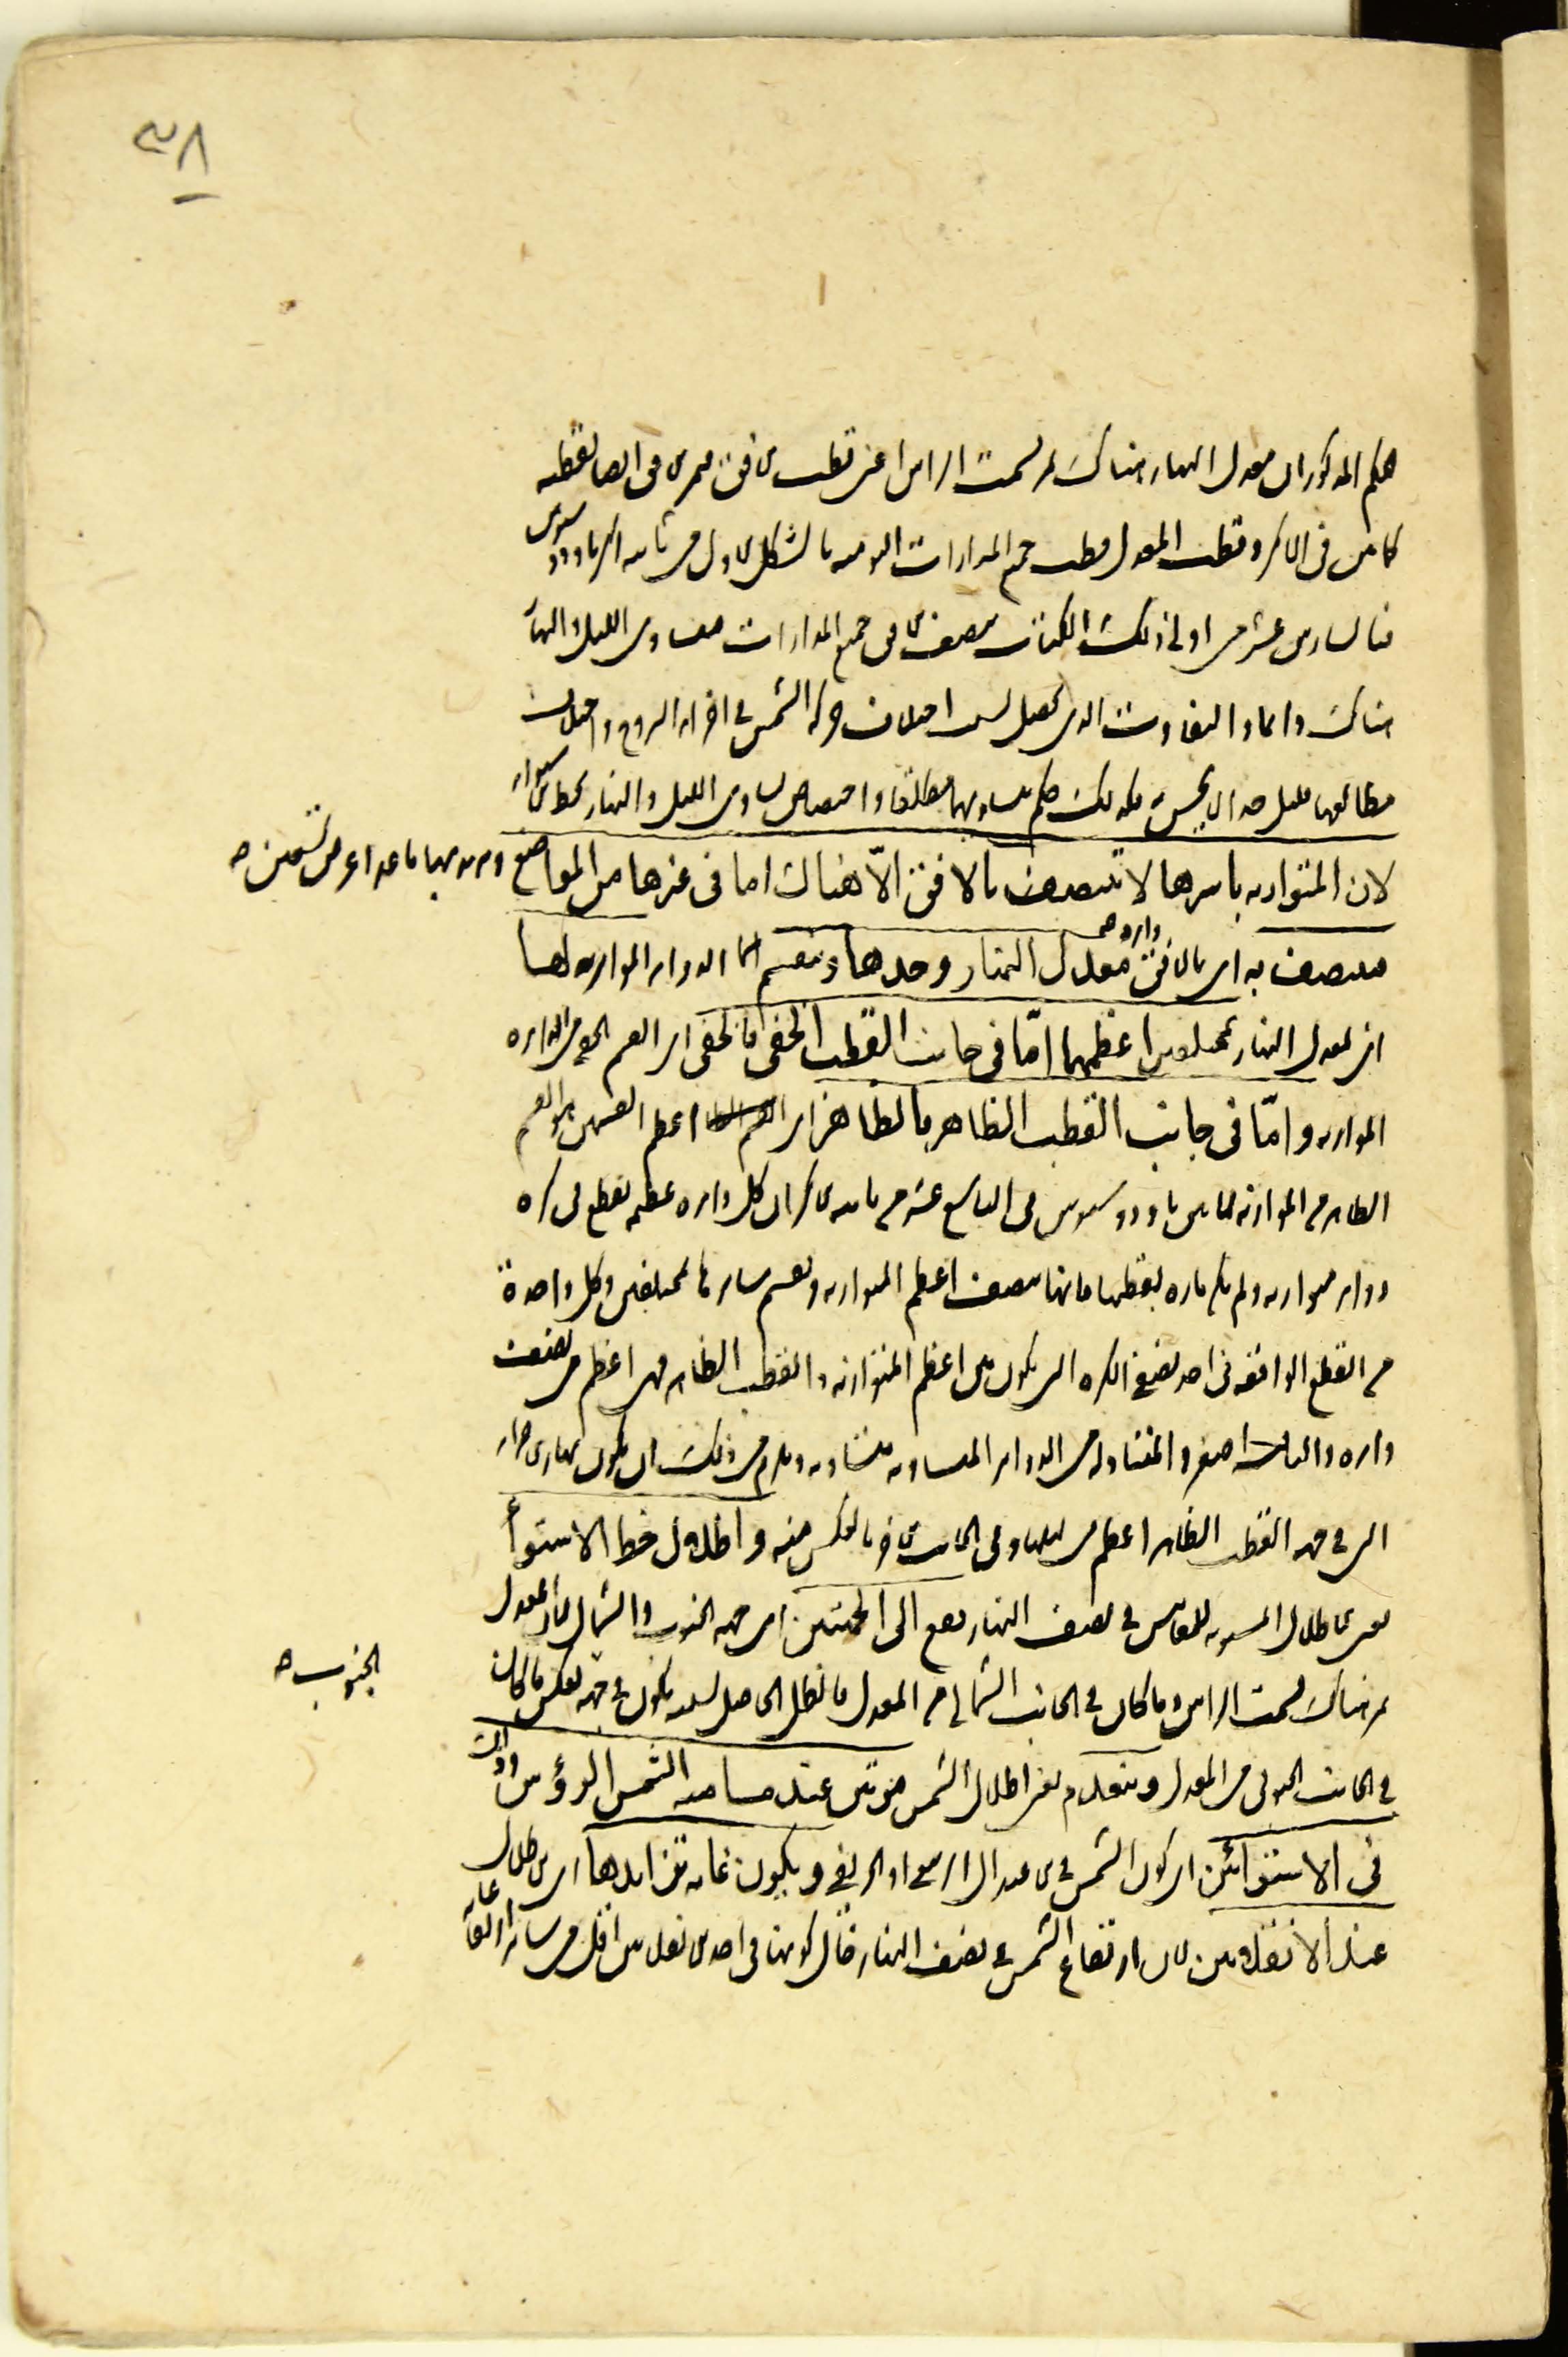 ٣٨
الحكم المذكور ان معدل النهار هناك يمر بسمت الراس اعنى قطب الافق فيمر الافق ايضا بقطبه
كما مر فى الاكر وقطب المعدل قطب جميع المدارات اليومية بالشكل الاول من ثانية اكر ثاوذوسيوس
فبالسادس عشر من اولى ذلك الكتاب ينصف الافق جميع المدارات فيتساوى الليل والنهار
هناك دائما والتفاوت الذى يحصل بسبب اختلاف حركة الشمس فى اجزاء البروج واختلاف
مطالعها قليل جدا لا يحس به فلذلك حكم بتساويهما مطلقا واختصاص تساوى الليل والنهار بخط الاستواء
لان المتوازية باسرها لا تنتصف بالافق الّا هناك اما فى غيرها من المواضع
ما عدا عرض تسعين صح
فينتصف به اى بالافق دائرة معدل النهار وحدها وينقسم الدوائر الموازية لها
اى لمعدل النهار بمختلفين اعظمهما امّا فى جانب القطب الخفى فالخفى اى القسم الخفى من الدائرة
الموازية وامّا فى جانب القطب الظاهر فالظاهر اى اعظم القسمين هو القسم
الظاهر من الموازية لما بين ثاوذوسيوس فى التاسع عشر من ثانية الاكر ان كل دائرة عظيمة تقطع فى كرة
دوائر متوازية ولم تكن مارة بقطبها فانها تنصف اعظم المتوازية وتقسم سائرها بمختلفين وكل واحدة
من القطع الواقعة فى احد نصفى الكرة التى يكون بين اعظم المتوازية والقطب الظاهر فهى اعظم من نصف
دائرة والباقية اصغر والمتبادلة من الدوائر المتساوية متساوية ويلزم من ذلك ان يكون نهار
التى فى جهة القطب الظاهر اعظم من ليلها وفى الجانب الاخر بالعكس منه واظلال خط الاستواء
يعنى الاظلال المستوية للمقاييس فى نصف النهار تقع الى الجهتين اى جهة الجنوب والشمال لان المعدل
يمر هناك بسمت الراس وما كان فى الجانب الشمالى من المعدل فالظل الحاصل بسببه يكون فى جهة بعكس ما كان
الجنوب صح
فى الجانب الجنوبى من المعدل وينعدم يعنى اظلال الشمس مرتين عند مسامتة الشمس الرؤس وذلك
فى الاستوائين اى كون الشمس فى الاعتدال الربيعى او الخريفى ويكون غاية تزايدها اى الاظلال
عند الانقلابين لان ارتفاع الشمس فى نصف النهار حال كونها فى احد الانقلابين اقل من سائر